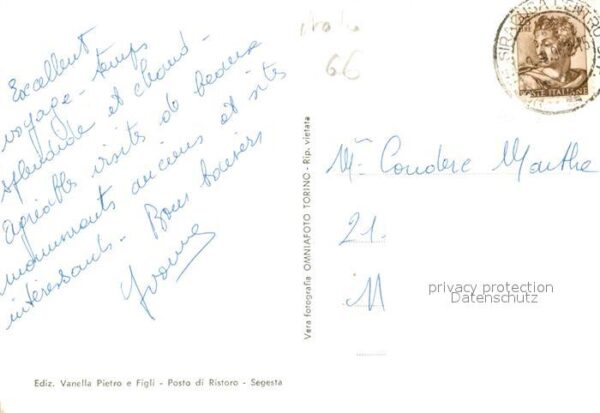 Excellent
voyage - temps
splendide et chaud -
Agréable visites de beaux
monuments anciens et sites
intéressants - Bons baisers
Yvonne
Ediz. Vanella Pietro e Figli - Posto di Ristoro - Segesta
Vera fotografia OMNIAFOTO TORINO - Rip. vietata
66
SIRACUSA CENTRO
POSTE ITALIANE
Mme Condere Marthe
21.
M
privacy protection
Datenschutz